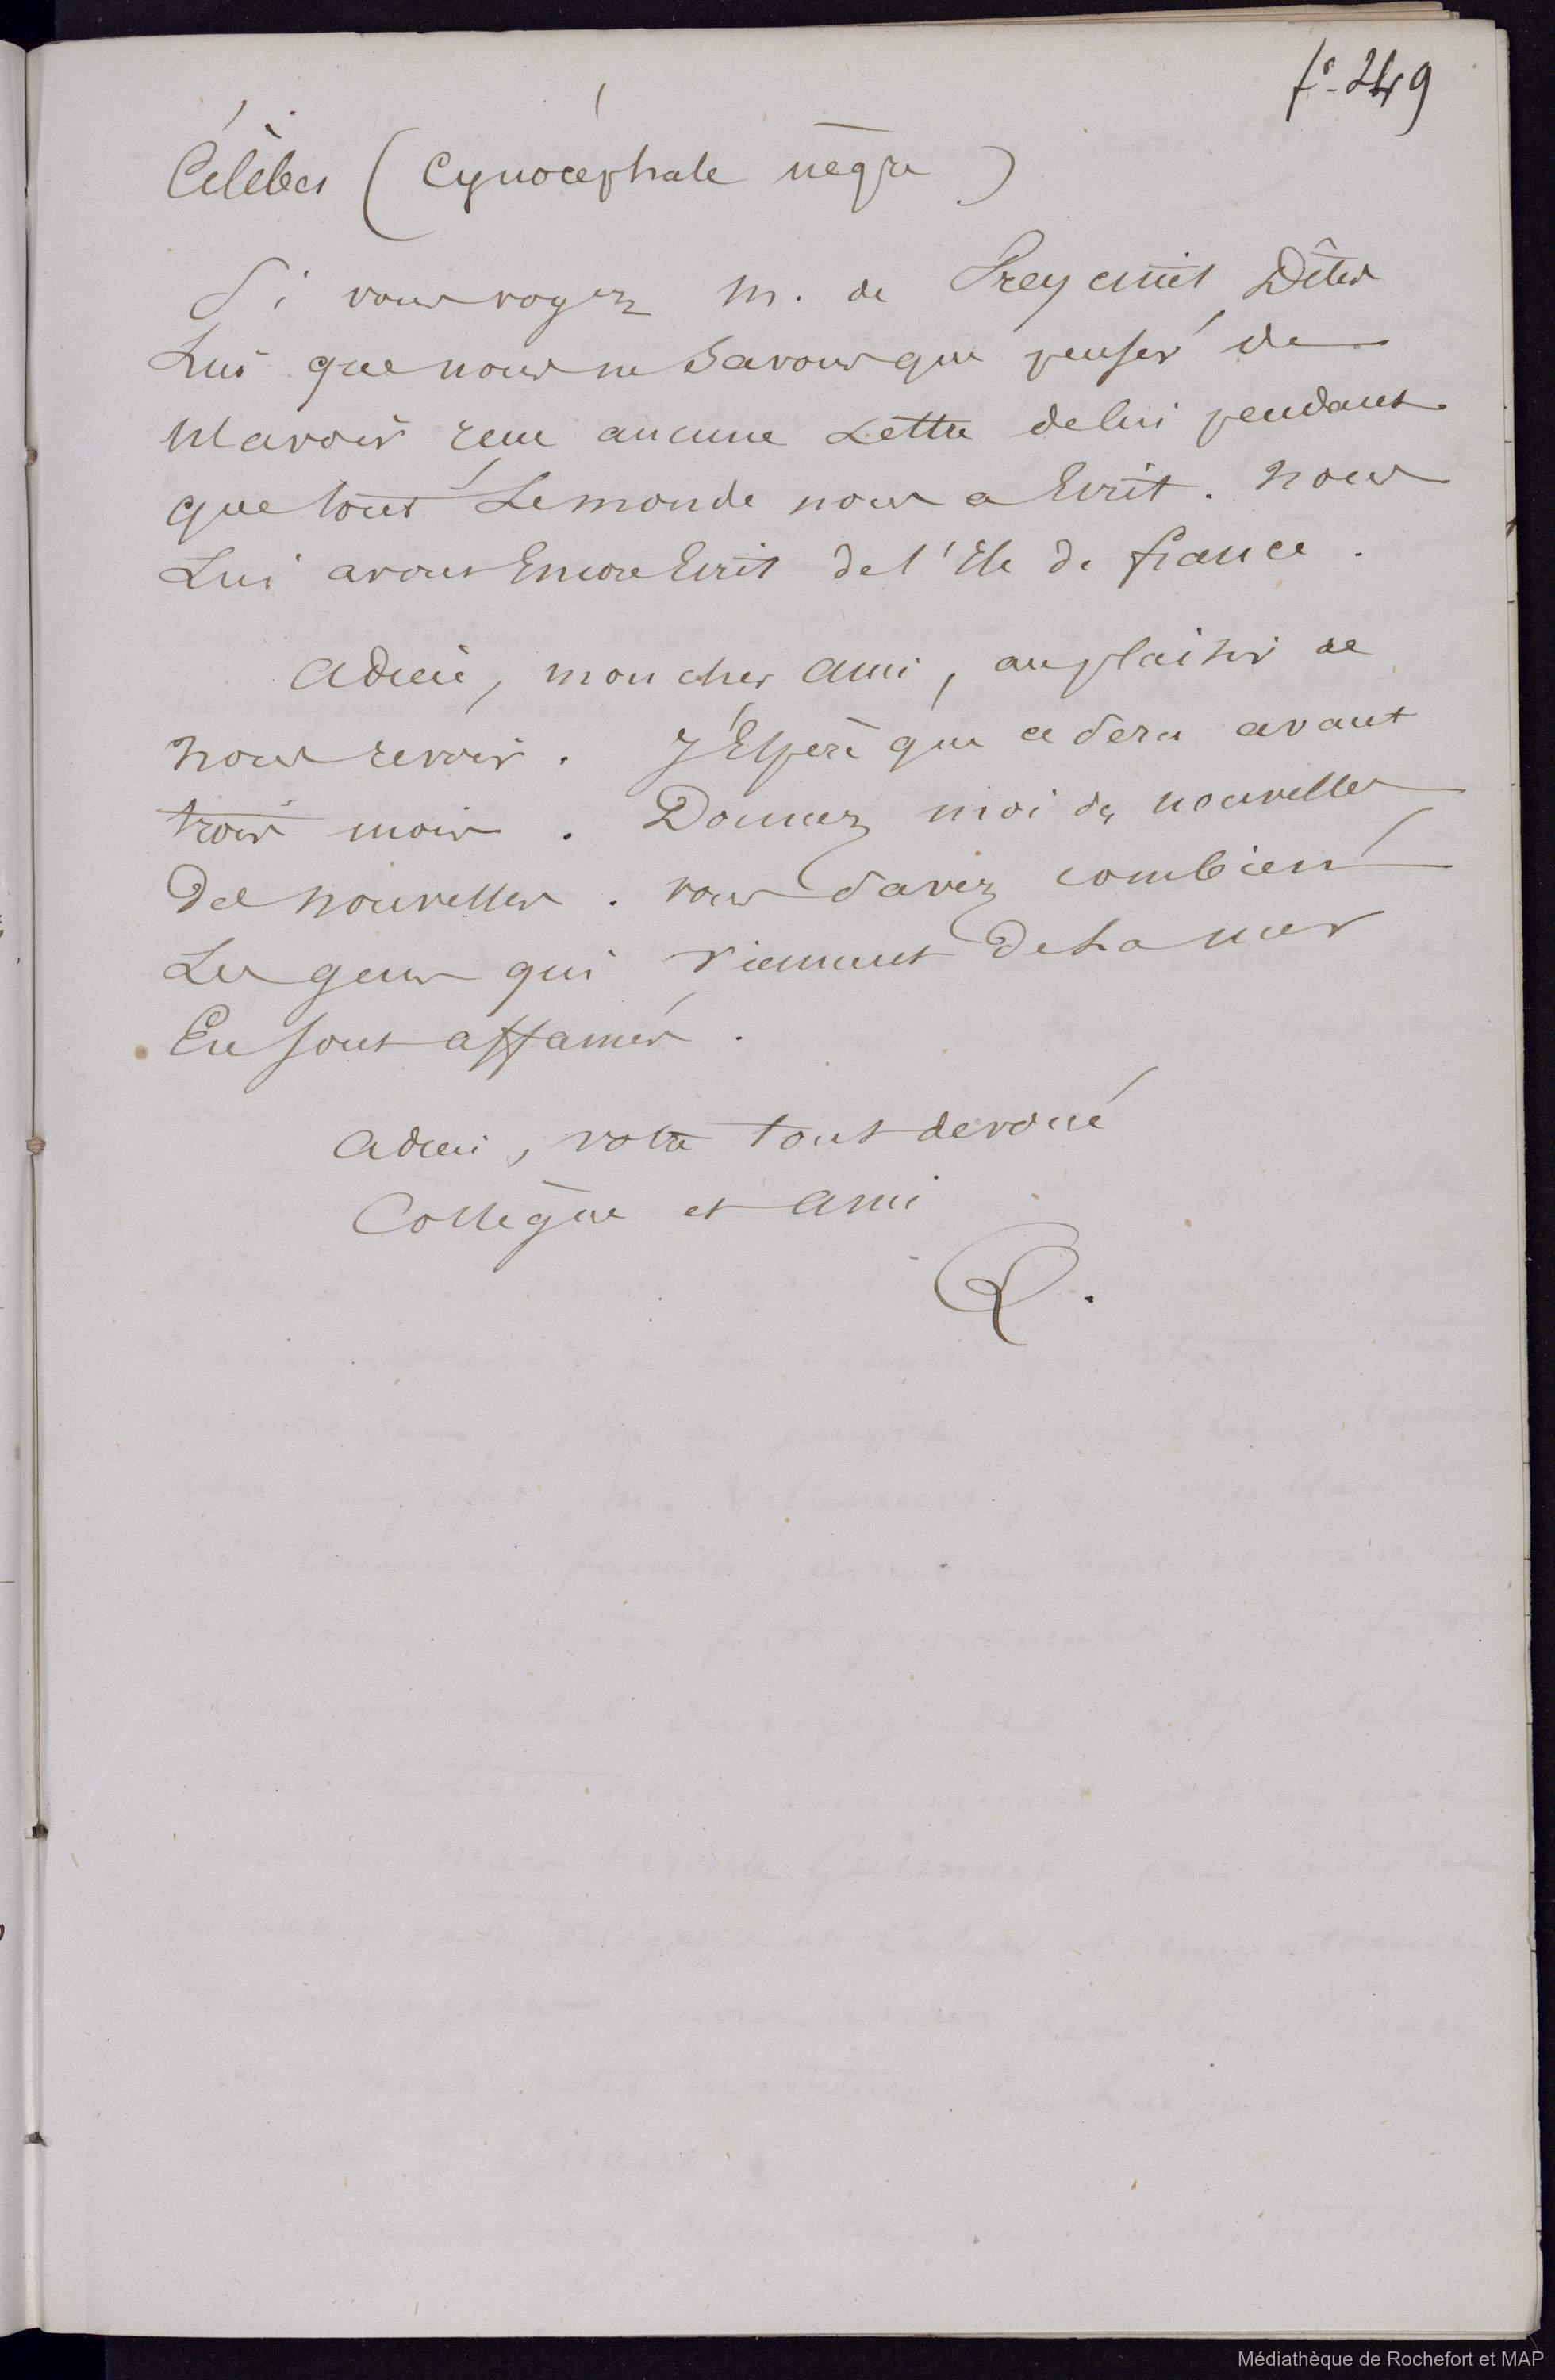 fº-249
Célèbes (Cynocéphale nègre)
Si vous voyez M. de Freycinet Dîtes
Lui que nous ne Savons que penser de
n'avoir reçu aucune Lettre de lui pendant
que tout Le monde nous a Ecrit. nous
Lui avons Encore Ecrit de l'Ile de france.
adieu, mon cher ami, au plaisir de
nous revoir. J'Espère que ce sera avant
trois mois. Donnez moi de nouvelles
De nouvelles. vous savez combien
Les gens qui viennent de La mer
En sont affamés.
adieu, votre tout dévoué
Collègue et ami
Q.
Médiathèque de Rochefort et MAP